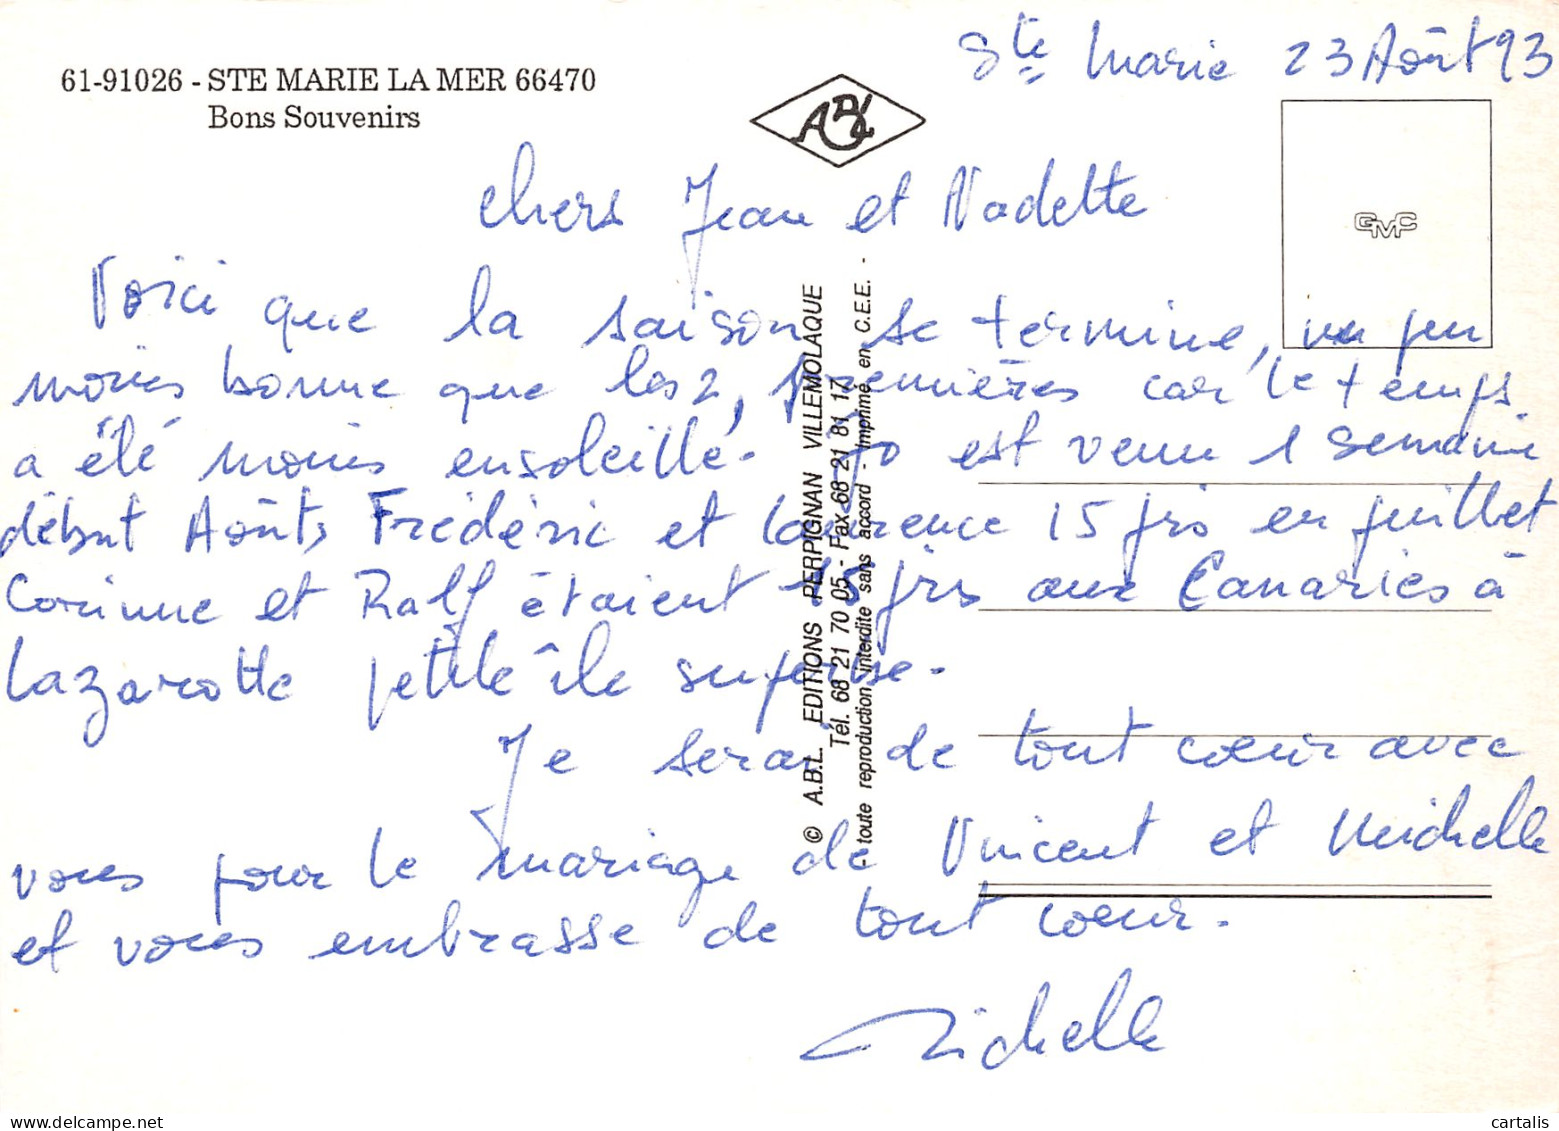 Ste Marie 23 Août 93
61-91026 - STE MARIE LA MER 66470
Bons Souvenirs
ABL
GMC
Chers Jean et Nadette
Voici que la saison se termine, un peu
moins bonne que les 2, premières car le temps
a été moins ensoleillé. Jo est venu 1 semaine
début Août, Frédéric et Laurence 15 jrs en juillet
Corinne et Ralf étaient 15 jrs aux Canaries à
Lazarotte petite île superbe.
Je serai de tout coeur avec
vous pour le mariage de Vincent et Michelle
et vous embrasse de tout coeur.
Michelle
© A.B.L. EDITIONS PERPIGNAN VILLEMOLAQUE
Tél. 68 21 70 05 - Fax 68 21 81 17
- toute reproduction interdite sans accord - Imprimé en C.E.E. -
www.delcampe.net
cartalis